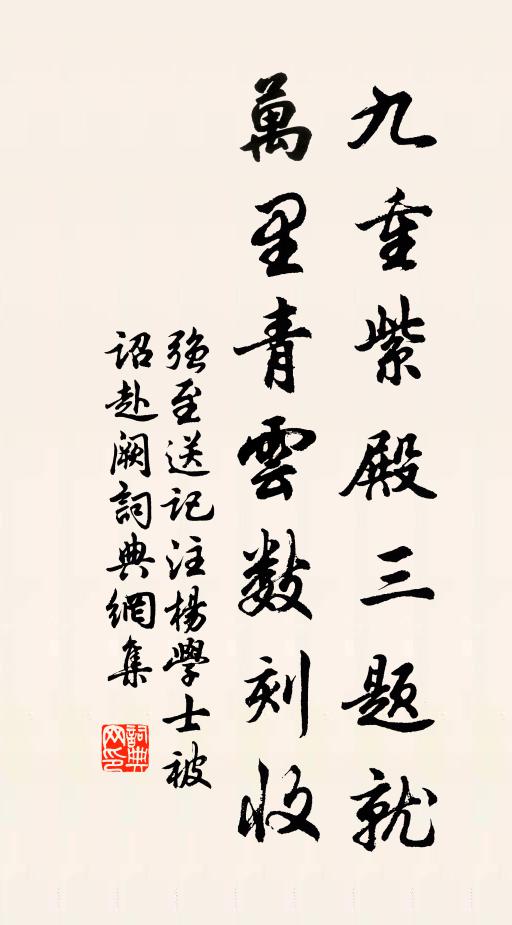 九重紫殿三題就
萬里青雲數刻收
強至送記注楊學士被
詔赴闕詞典網集
詞典
网印